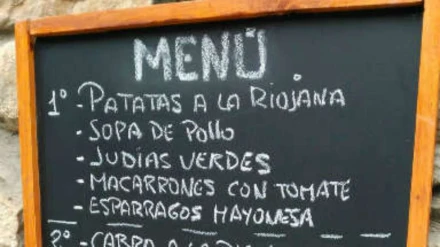 MENÚ
1º - PATATAS A LA RIOJANA
- SOPA DE POLLO
- JUDIAS VERDES
- MACARRONES CON TOMATE
- ESPARRAGOS MAYONESA
2º - CABRA A LA